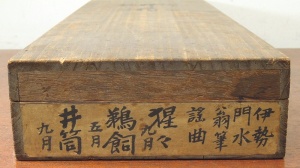 伊勢
門水
翁筆
謡曲
猩々
九月
鵜飼
五月
井筒
九月